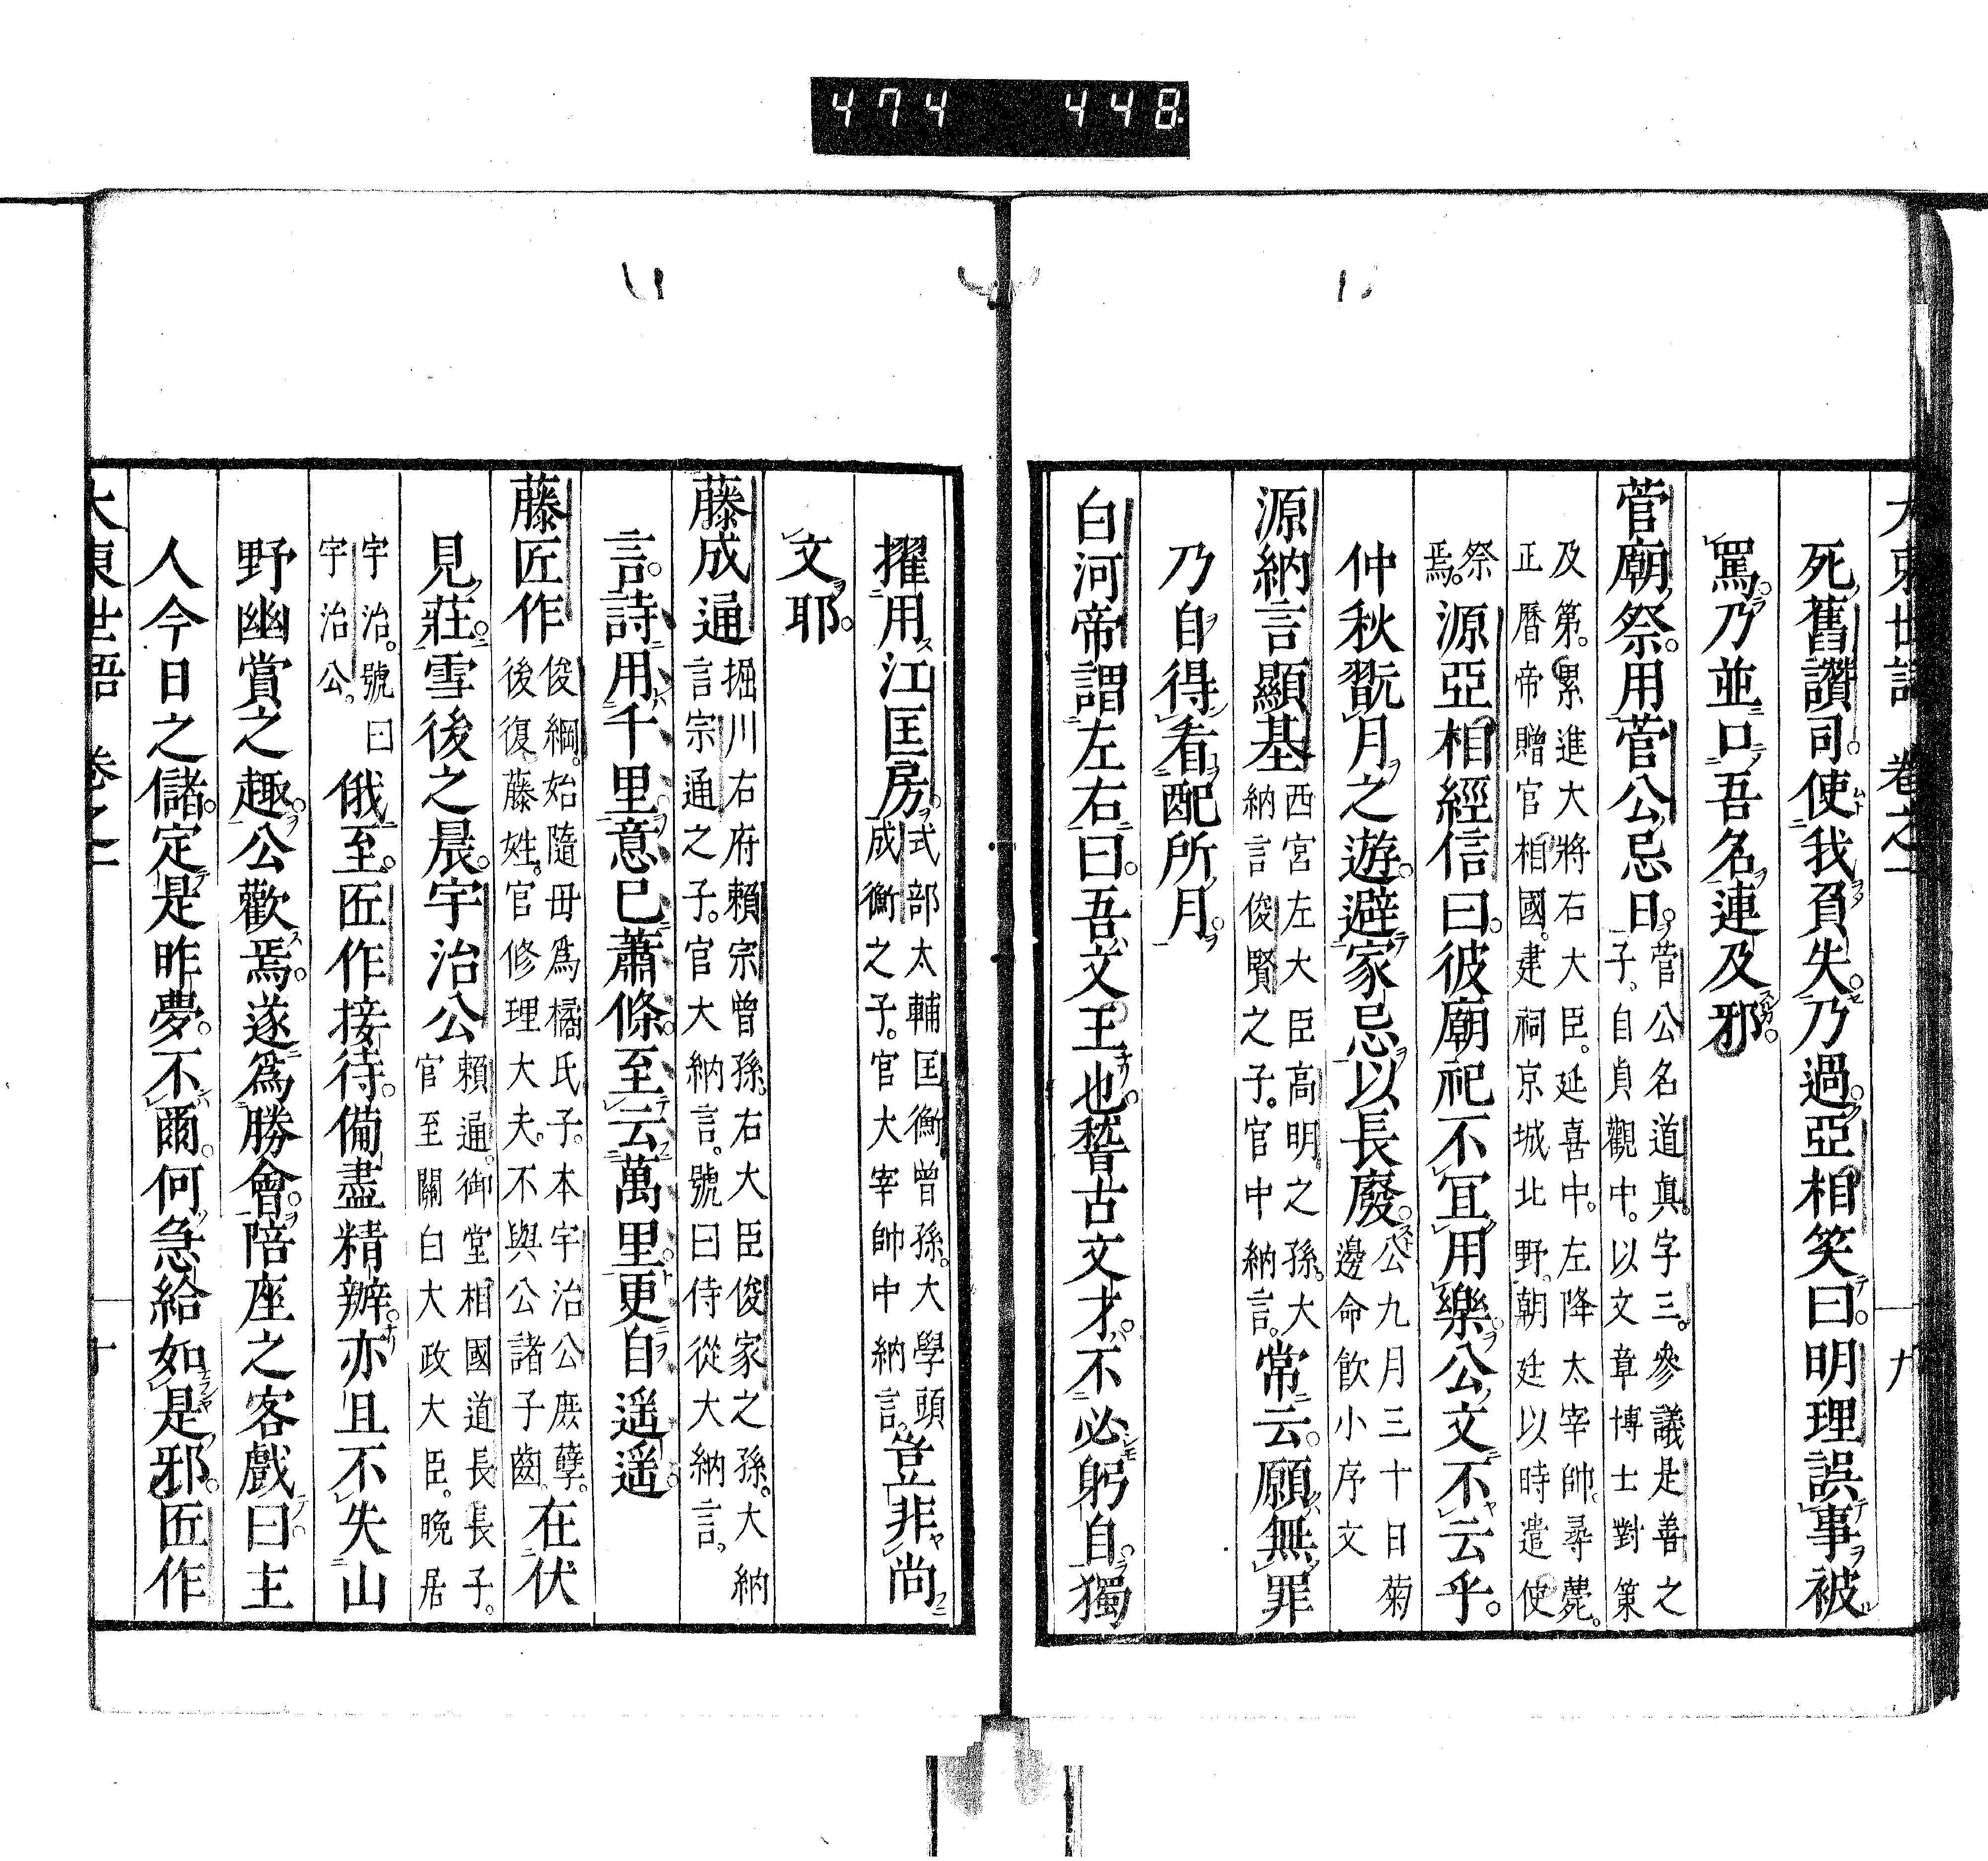 474 448.
大東世語 卷之一 九
死。舊讚司。使我負失。乃過。亞相笑曰。明理誤事被
罵。乃並口吾名連及邪。
菅廟祭。用菅公忌日。菅公名道眞。字三。參議是善之子。自貞觀中。以文章博士對策
及第。累進大將右大臣。延喜中。左降太宰帥。尋薨。正曆帝贈官相國。建祠京城北野。朝廷以時遣使
祭焉。源亞相經信曰。彼廟祀不宜用樂。公文不云乎。
仲秋翫月之遊。避家忌以長廢。公九月三十日菊邊命飲小序文
源納言顯基西宮左大臣高明之孫。大納言俊賢之子。官中納言。常云。願無罪
乃自得看配所月。
白河帝謂左右曰。吾文王也。稽古文才。不必躬自。獨
擢用江匡房。式部太輔匡衡曾孫。大學頭成衡之子。官大宰帥中納言。豈非尚
文耶。
藤成通堀川右府賴宗曾孫。右大臣俊家之孫。大納言宗通之子。官大納言。號曰侍從大納言。
言。詩用千里。意已蕭條。至云萬里。更自遥遥。
藤匠作俊綱。始隨母爲橘氏子。本宇治公庶孽。後復藤姓。官修理大夫。不與公諸子齒。在伏
見莊。雪後之晨。宇治公賴通。御堂相國道長長子。官至關白大政大臣。晩居
宇治。號曰宇治公。俄至。匠作接待。備盡精辦。亦且不失山
野幽賞之趣。公歡焉。遂爲勝會。陪座之客戲曰。主
人今日之儲。定是昨夢。不爾。何急給如是邪。匠作
大東世語 卷之一 十